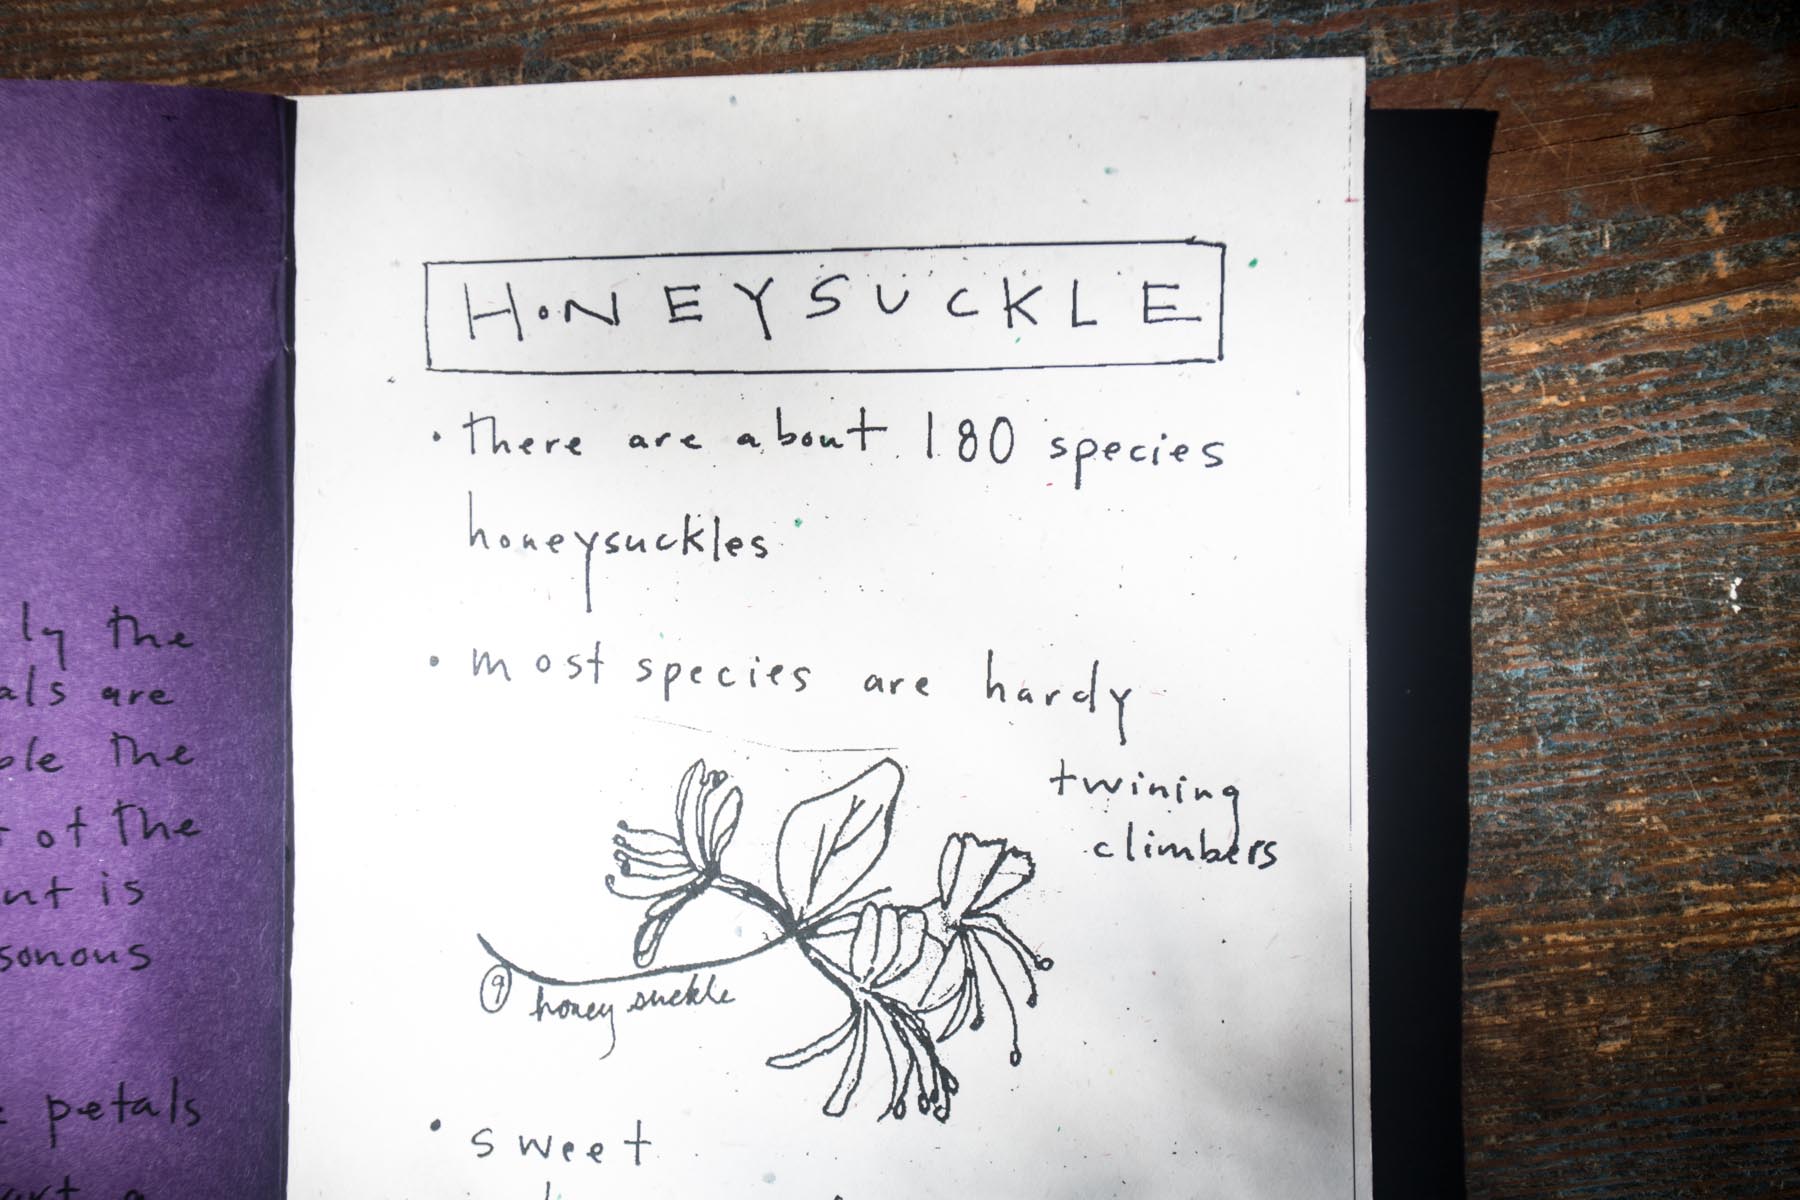 ly the
als are
ble the
of the
nt is
sonous
petals
HONEYSUCKLE
• there are about 180 species
honeysuckles
• most species are hardy
twining
climbers
9 honey suckle
• sweet